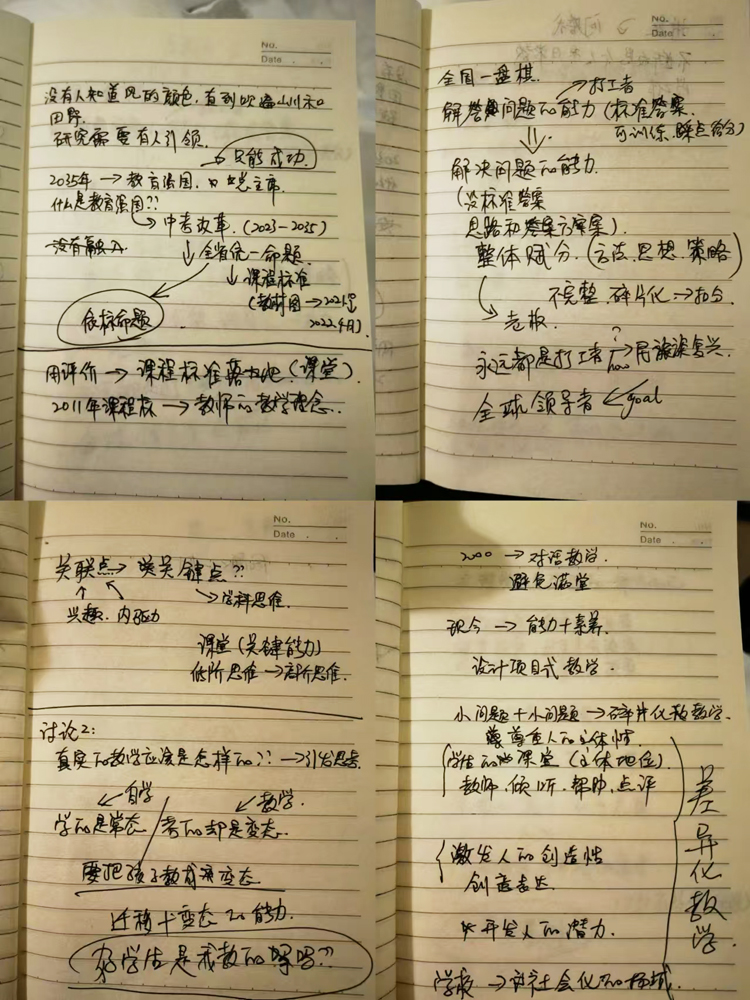 No.
Date
没有人知道风的颜色，直到吹遍山川和
田野.
研究需要有人引领.
只能成功.
2035年 → 教育强国.
主席.
什么是教育强国??
中考改革.（2023-2035）
没有触入
↓全省统一命题.
↓课程标准
（教材图→2021
2022.4月）
依标命题
用评价 → 课程标准落地（课堂）.
2011年课程标 → 教师的教学理念.
No.
Date
全国一盘棋.
打工者
解答问题的能力（标准答案.
可训练.踩点给分）
解决问题的能力.
（没标准答案
思路和方案）.
整体赋分.（方法.思想.策略）
不完整.碎片化→扣分.
老板.
永远都是打工者 ?
how 民族复兴.
全球领导者 ← goal
No.
Date
关联点→关键点??
兴趣.内驱力
→学科思维.
课堂（关键能力）
低阶思维→高阶思维.
讨论2:
真实的教学应该是怎样的?? →引发思考
自学 教学.
学的是常态 考的却是变态.
要把孩子教成变态.
迁移+变态的能力.
好学生是我教的吗??
No.
Date
2000 → 对话教学.
避免满堂
现今 → 能力+素养.
设计项目式教学.
小问题+小问题 → 碎片化教学.
尊重人的主体性.
学生的课堂（主体地位）
教师.倾听.帮助.点评
激发人的创造性
创造表达.
开发人的潜力.
学校 → 社会化的场域.
差异化教学.